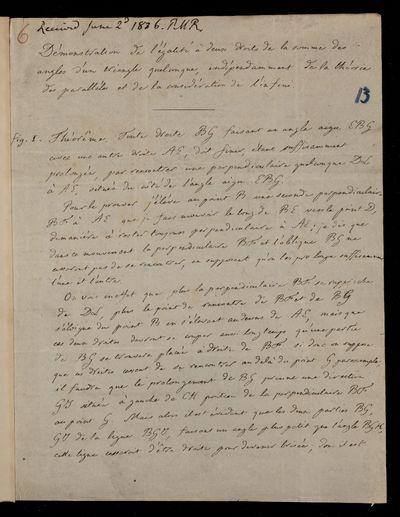 6
Received June 2d 1836. P.M.R.
Démonstration de l'égalité à deux droits de la somme des
angles d'un triangle quelconque, indépendamment de la théorie
des parallèles et de la considération de l'infini.
13
Fig. 1. Théorème. Toute droite BG faisant un angle aigu EBG
avec une autre droite AE, doit finir, étant suffisamment
prolongée, par rencontrer une perpendiculaire quelconque DL
à AE, située du côté de l'angle aigu EBG.
Pour le prouver j'élève au point B une seconde perpendiculaire
BF à AE que je fais mouvoir le long de BE vers le point D,
de manière à rester toujours perpendiculaire à AE; je dis que
dans ce mouvement la perpendiculaire BF et l'oblique BG ne
cesseront pas de se rencontrer, en supposant qu'on les prolonge suffisamment
l'une et l'autre.
On voit en effet que plus la perpendiculaire BF se rapproche
de DL, plus le point de rencontre de BF et de BG
s'éloigne du point B en s'élevant au dessus de AE, mais que
ces deux droites devront se couper aussi longtemps qu'une partie
de BG se trouvera placée à droite de BF. si donc on suppose
que ces droites cessent de se rencontrer au delà du point G par exemple,
il faudra que le prolongement de BG prenne une direction
GV située à gauche de CH portion de la perpendiculaire BF
au point G. Mais alors il est évident que les deux parties BG,
GV de la ligne BGV, faisant un angle plus petit que l'angle BGH,
cette ligne cesserait d'être droite pour devenir brisée; d'où il est